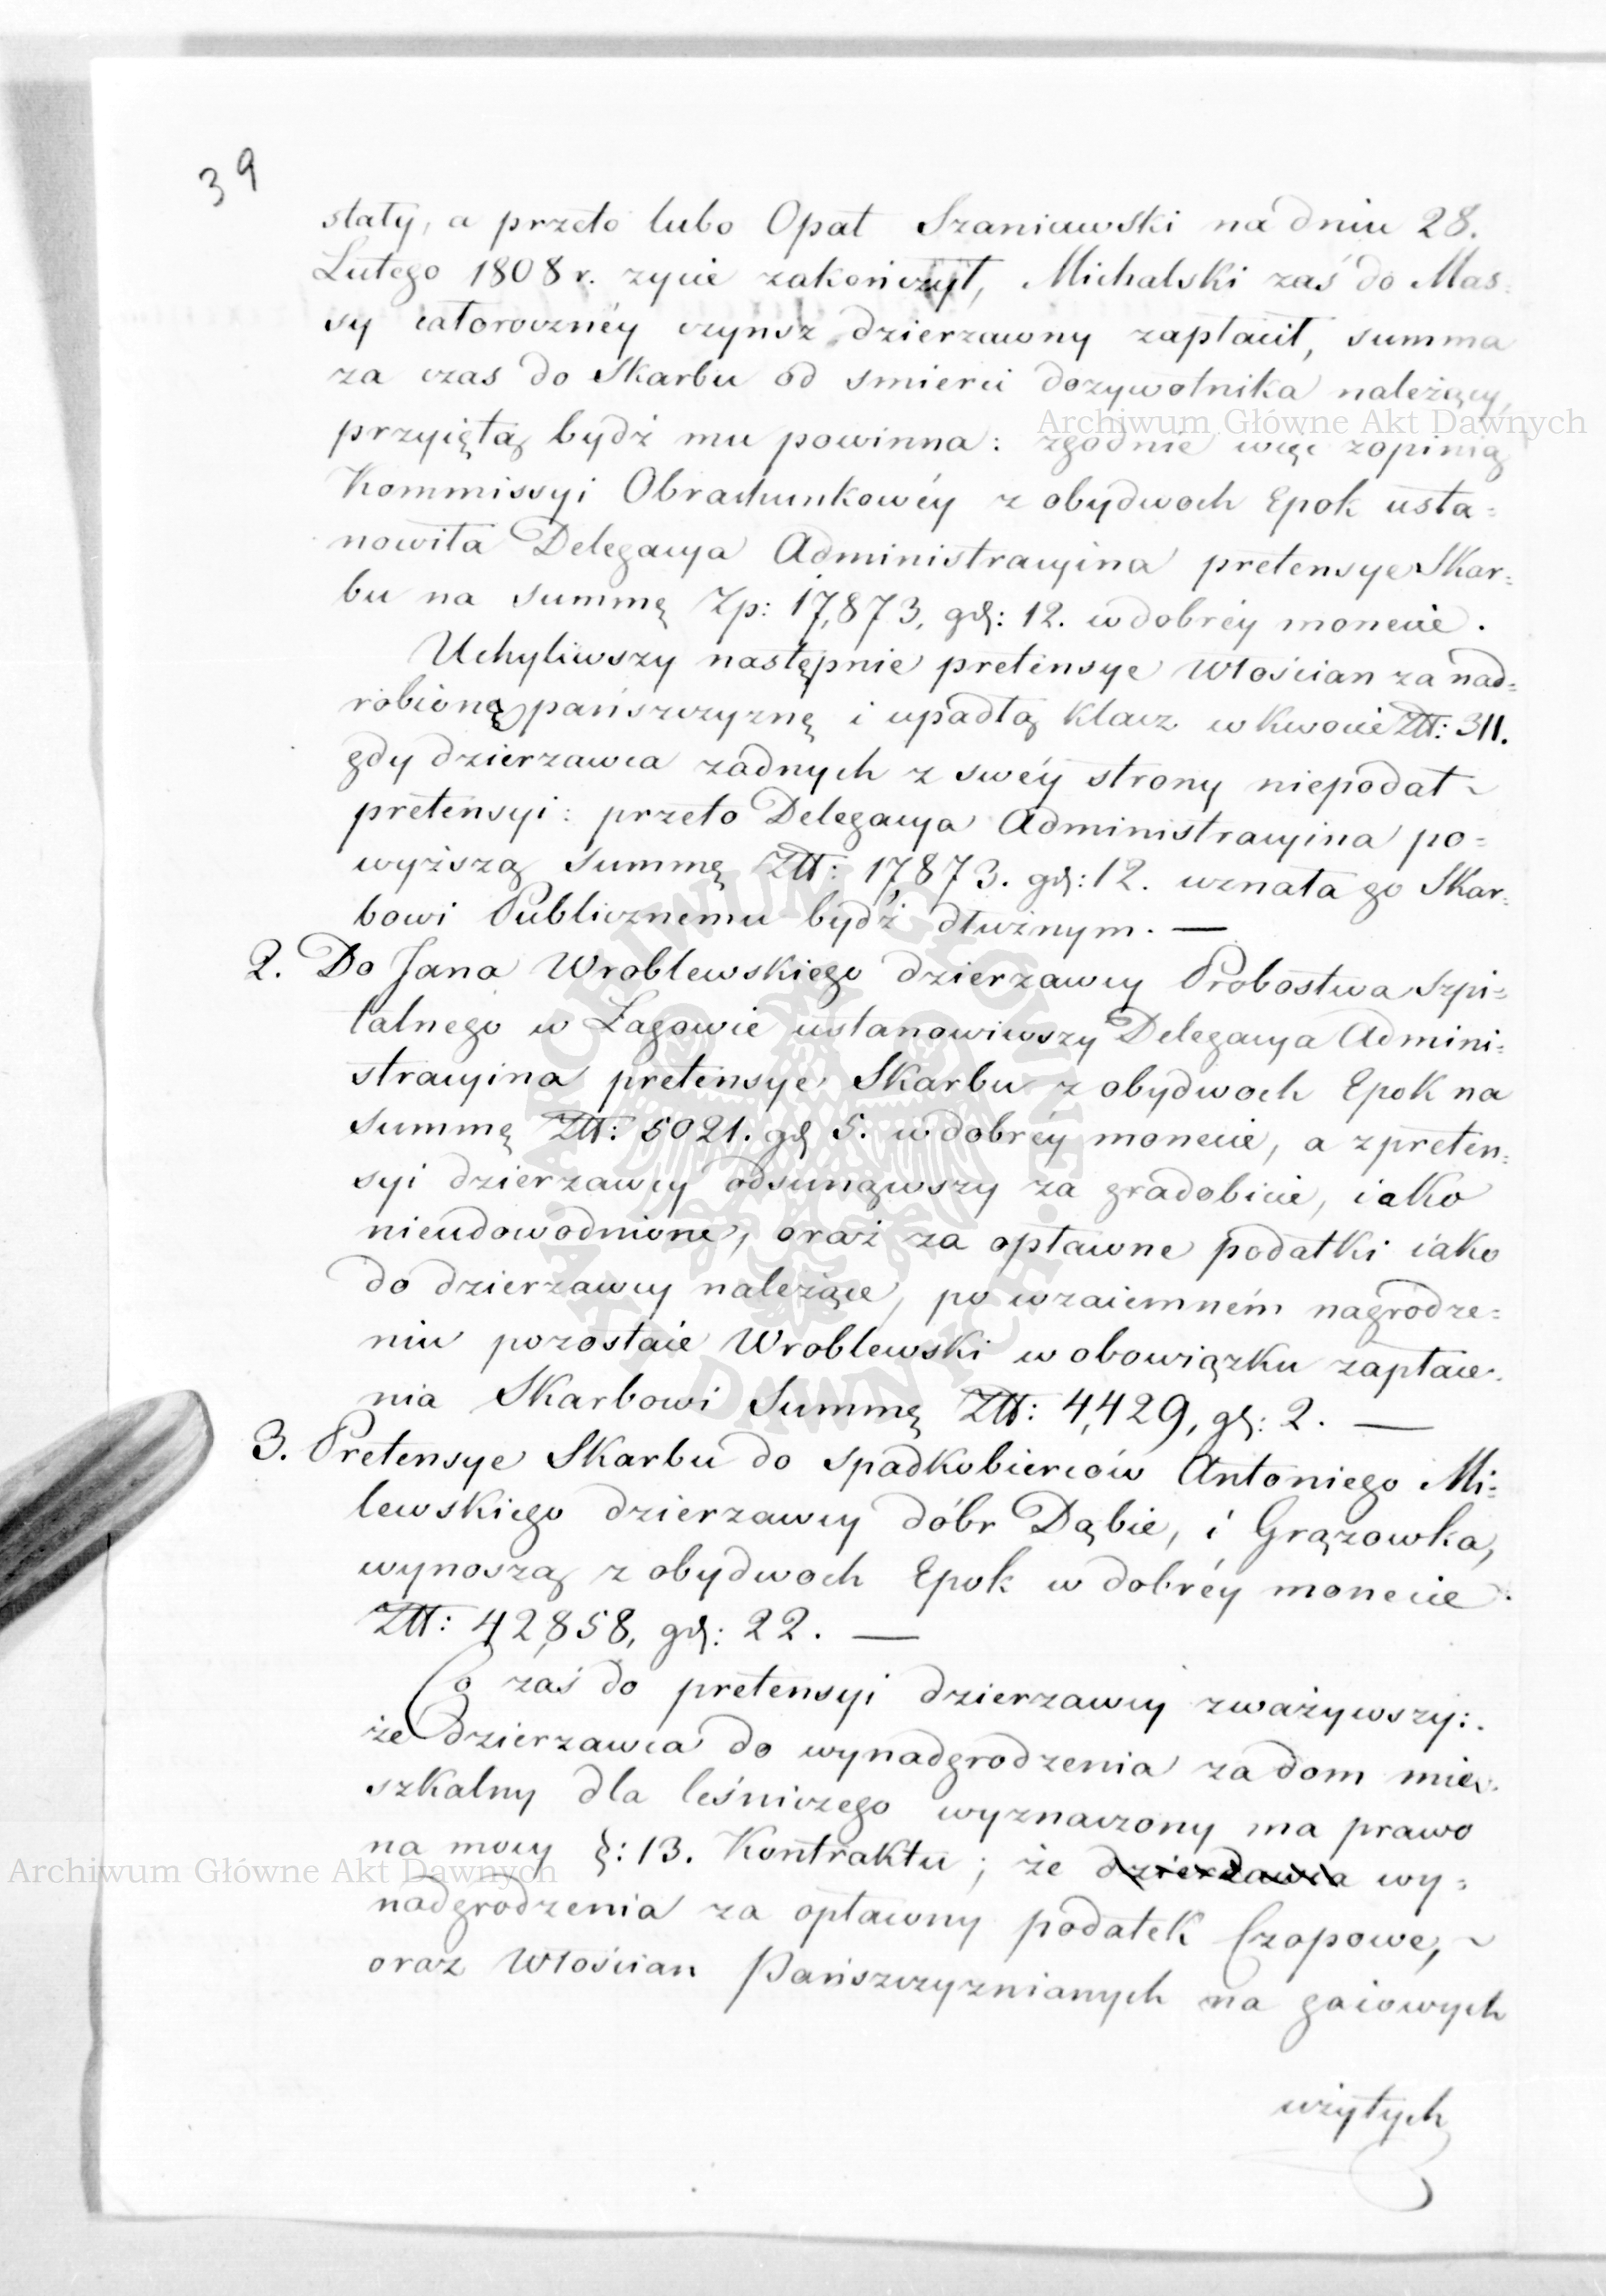 39
stały, a przeto lubo Opat Szaniawski na dniu 28.
Lutego 1808 r. zycie zakończył, Michalski zaś do Mas-
sy całorocznéy czynsz dzierzawny zapłacił, summa
za czas do Skarbu od smierci dozywotnika należący,
przyiętą bydź mu powinna: zgodnie więc z opinią
Kommissyi Obrachunkowéy z obydwoch Epok usta=
nowiła Delegacya Administracyina pretensye Skar=
bu na summę Zp: 17,873, gr: 12. w dobréy monecie.
Uchyliwszy następnie pretensye Włościan za nad=
robioną pańszczyznę i upadłą klacz w kwocie Złł: 311.
gdy dzierzawca zadnych z swéy strony niepodał ~
pretensyi: przeto Delegacya Administracyina po=
wyższą Summę Złł: 17,873. gr: 12. uznała go Skar=
bowi Publicznemu bydź dłużnym. —
2. Do Jana Wroblewskiego dzierzawcy Probostwa Szpi=
talnego w Łagowie ustanowiwszy Delegacya Admini=
stracyina pretensye Skarbu z obydwoch Epok na
Summę Złł: 5021. gr 5. w dobréy monecie, a z preten=
syi dzierzawcy odsunąwszy za gradobicie, iako
nieudowodnione, oraz za opłacone podatki iako
do dzierzawcy należące, po wzaiemném nagrodze=
niu pozostaie Wroblewski w obowiązku zapłace-
nia Skarbowi Summę Złł: 4,429, gr: 2. —
3. Pretensye Skarbu do spadkobierców Antoniego Mi=
lewskiego dzierzawcy dóbr Dąbie, i Grązowka,
wynoszą z obydwoch Epok w dobréy monecie
Złł: 42,858, gr: 22. —
Co zaś do pretensyi dzierzawcy zważywszy:
że Dzierzawca do wynadgrodzenia za dom mie-
szkalny dla leśniczego wyznaczony ma prawo
na mocy §: 13. Kontraktu; że dzierzawca wy=
nadgrodzenia za opłacony podatek Czopowe, ~
oraz Włościan Pańszczyznianych na gaiowych
użytych
Archiwum Główne Akt Dawnych
Archiwum Główne Akt Dawnych
ARCHIWUM GŁÓWNE AKT DAWNYCH